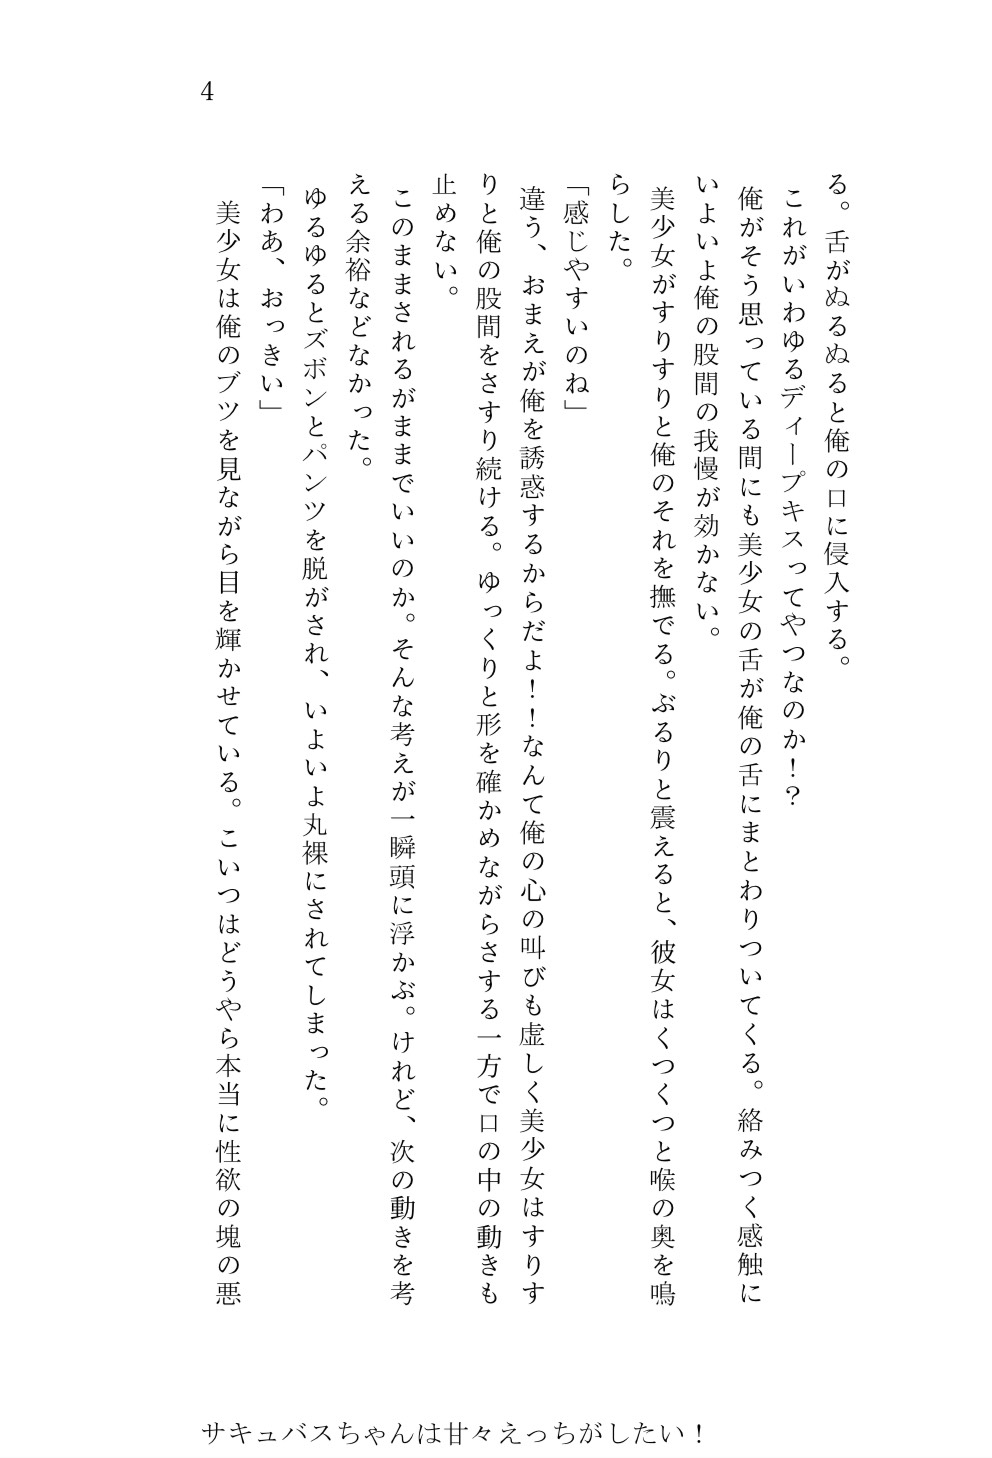 4
る。舌がぬるぬると俺の口に侵入する。
これがいわゆるディープキスってやつなのか！？
俺がそう思っている間にも美少女の舌が俺の舌にまとわりついてくる。絡みつく感触に
いよいよ俺の股間の我慢が効かない。
美少女がすりすりと俺のそれを撫でる。ぶるりと震えると、彼女はくつくつと喉の奥を鳴
らした。
「感じやすいのね」
違う、おまえが俺を誘惑するからだよ！！なんて俺の心の叫びも虚しく美少女はすりす
りと俺の股間をさすり続ける。ゆっくりと形を確かめながらさする一方で口の中の動きも
止めない。
このままされるがままでいいのか。そんな考えが一瞬頭に浮かぶ。けれど、次の動きを考
える余裕などなかった。
ゆるゆるとズボンとパンツを脱がされ、いよいよ丸裸にされてしまった。
「わあ、おっきい」
美少女は俺のブツを見ながら目を輝かせている。こいつはどうやら本当に性欲の塊の悪
サキュバスちゃんは甘々えっちがしたい！